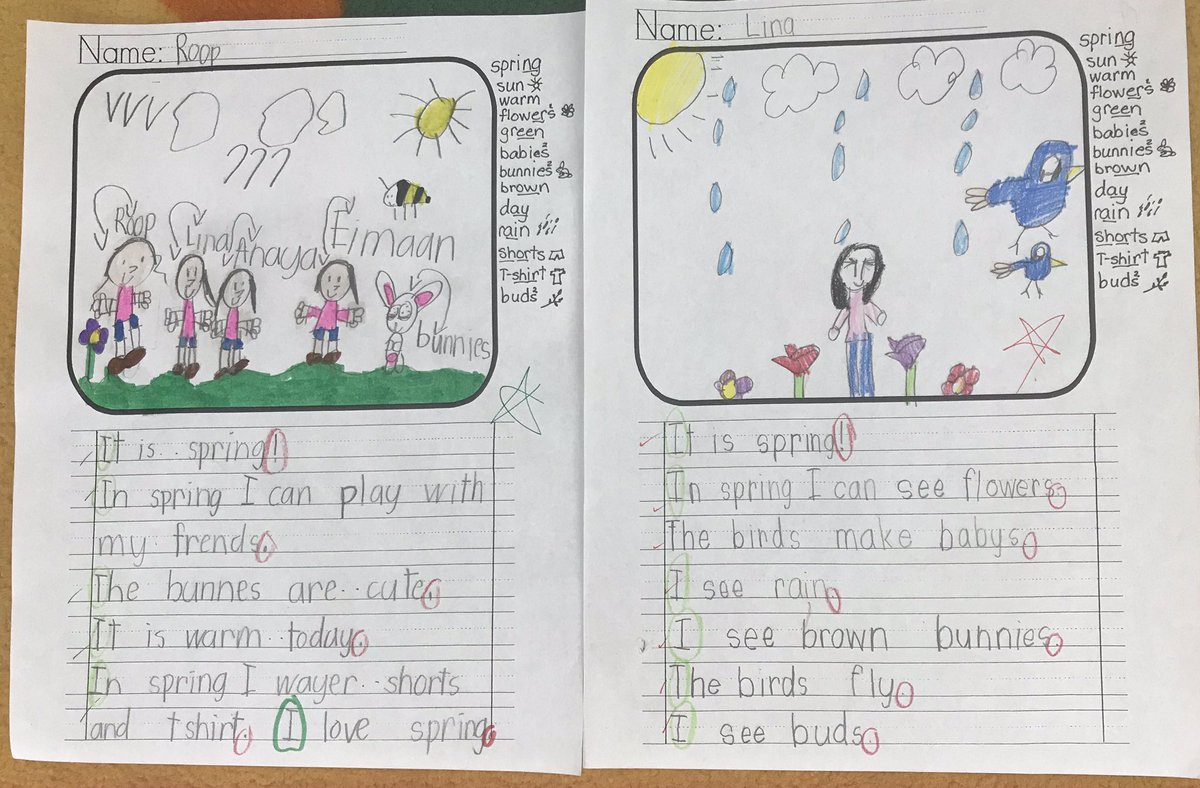 Name: Roop
spring
sun
warm
flowers
green
babies
bunnies
brown
day
rain
shorts
T-shirt
buds
Roop
Lina
Anaya
Eimaan
bunnies
It is spring!
In spring I can play with
my frends.
The bunnes are cute.
It is warm today.
In spring I wayer shorts
and tshirt. I love spring.
Name: Lina
spring
sun
warm
flowers
green
babies
bunnies
brown
day
rain
shorts
T-shirt
buds
It is spring!
In spring I can see flowers.
The birds make babys.
I see rain.
I see brown bunnies.
The birds fly.
I see buds.